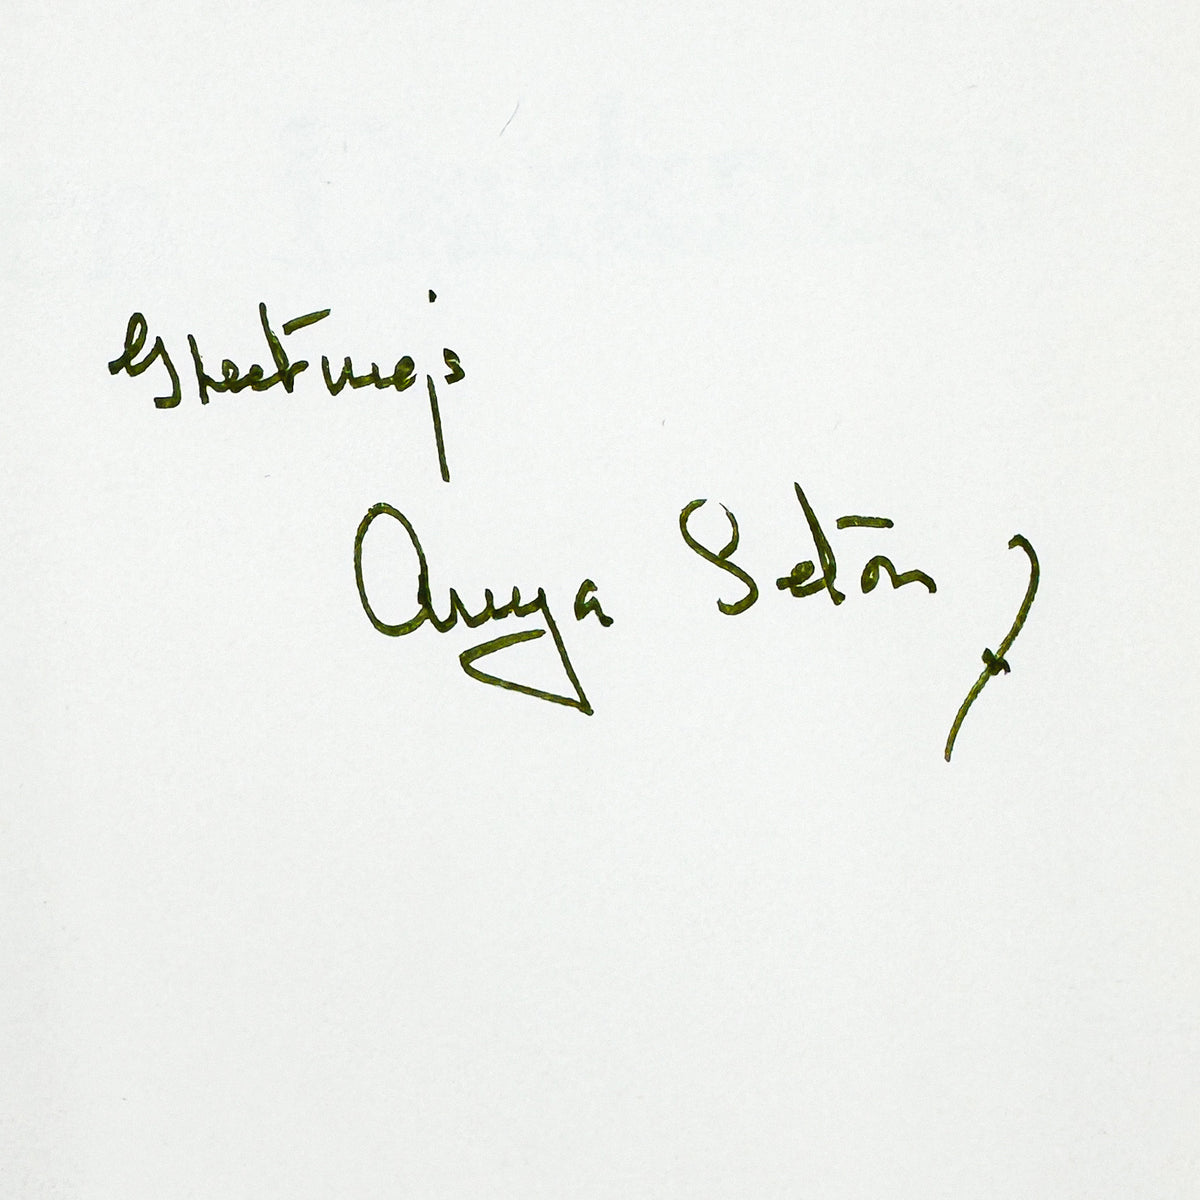 Greetings
Anya Seton